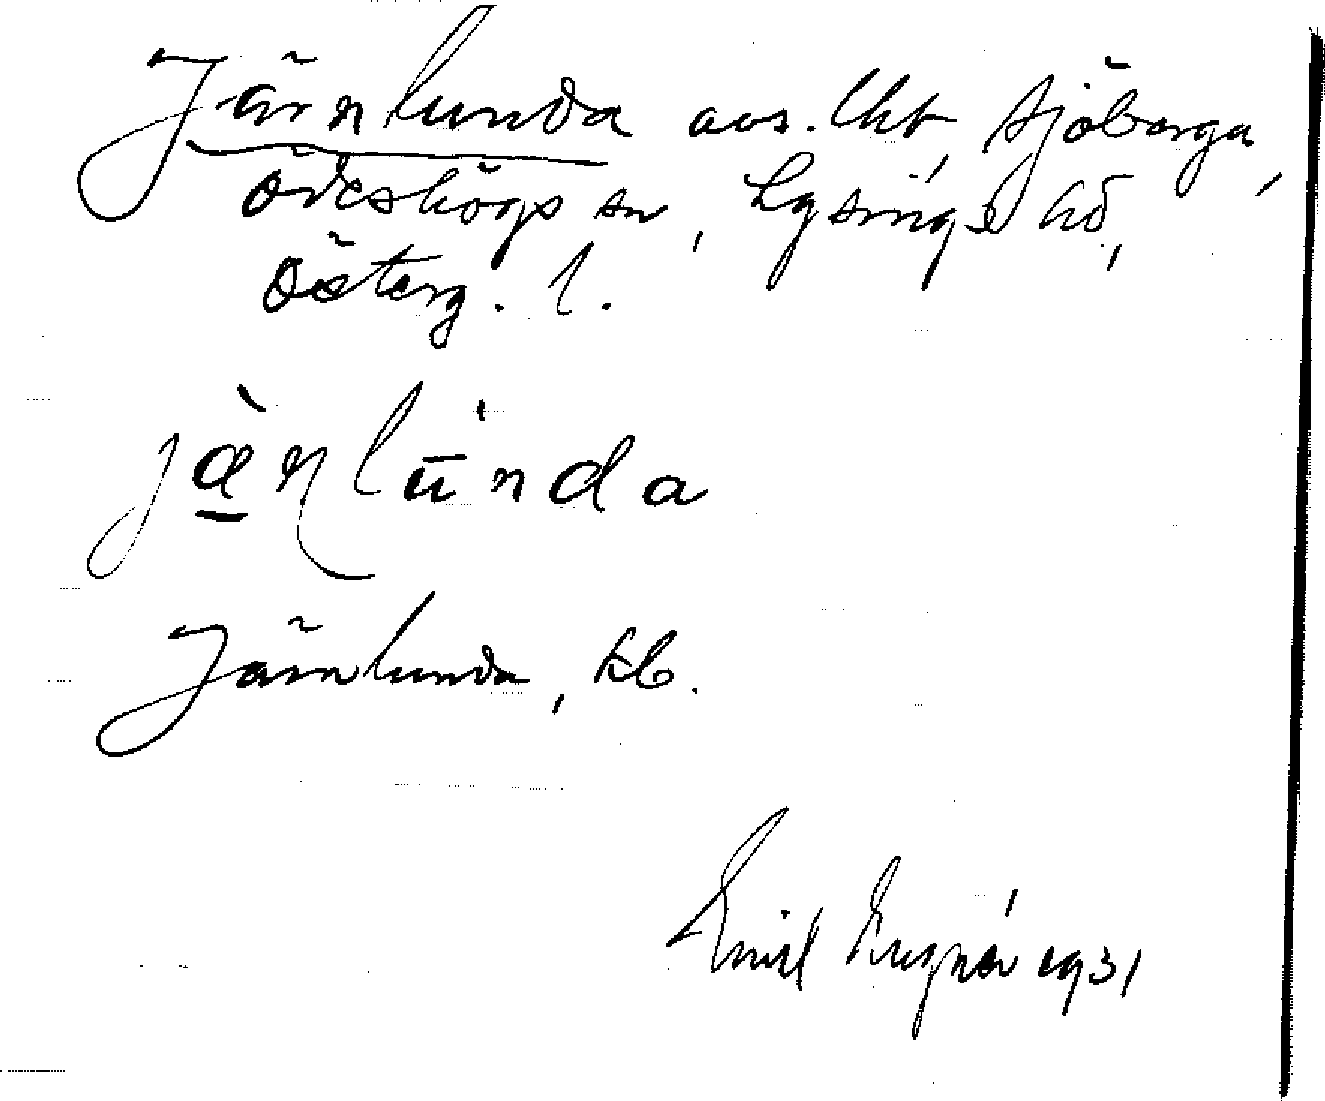 Järnlunda avs. lht, Sjöberga,
Ödeshögs sn, Lysings hd,
Österg. l.
jànlūnda
Järnlunda, kb.
Emil 1931